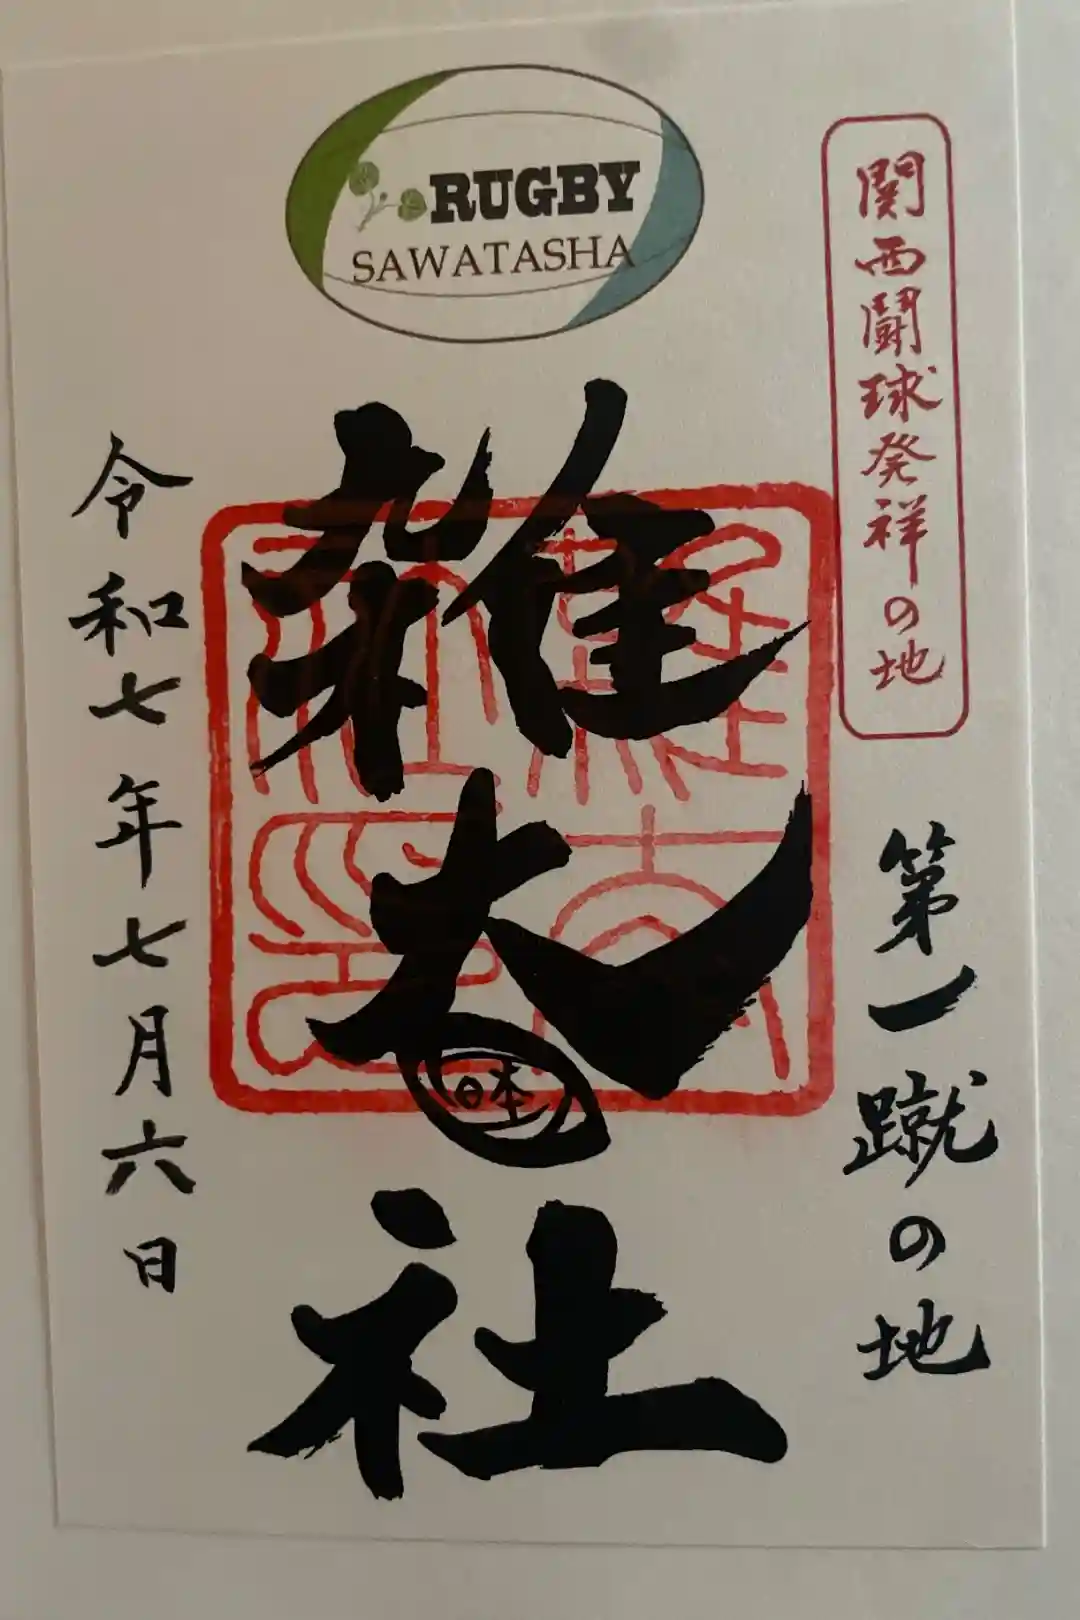 RUGBY
SAWATASHA
関西闘球発祥の地
第一蹴の地
雑太社
令和七年七月六日